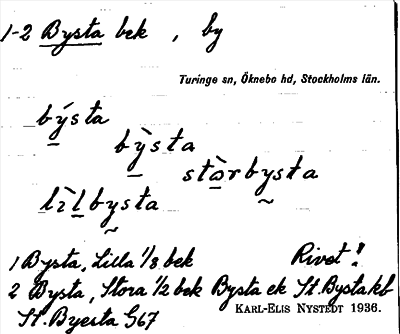 1-2 Bysta bek , by
Turinge sn, Öknebo hd, Stockholms län.
býsta
bỳsta
stòrbysta
lìlbysta
1 Bysta, Lilla 1/8 bek Rivet!
2 Bysta, Stora 1/2 bek Bysta ek St. Bysta kb
KARL-ELIS NYSTEDT 1936.
St. Byesta G67